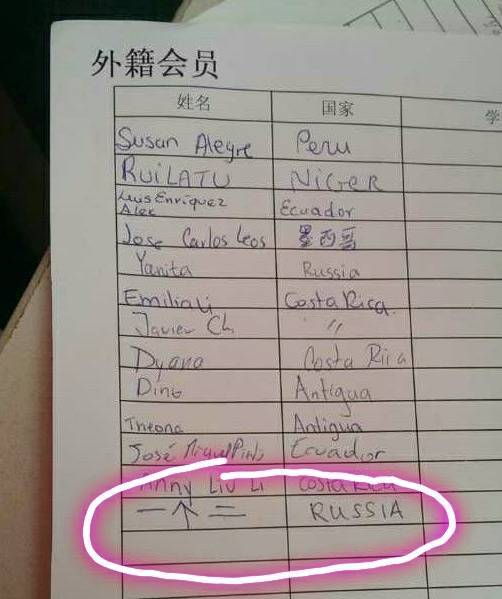 外籍会员
姓名 国家 学
Susan Alegre Peru
RUiLATU NiGeR
Luis Enriquez Ecuador
Alex
José Carlos Leos 墨西哥
Yanita Russia
Emilia Li Costa Rica.
Javier Ch. "
Dyana Costa Rica
Dino Antigua
Theona Antigua
José Miguel Pinto Ecuador
Anny Liu Li Costa Rica
一个二 RUSSIA